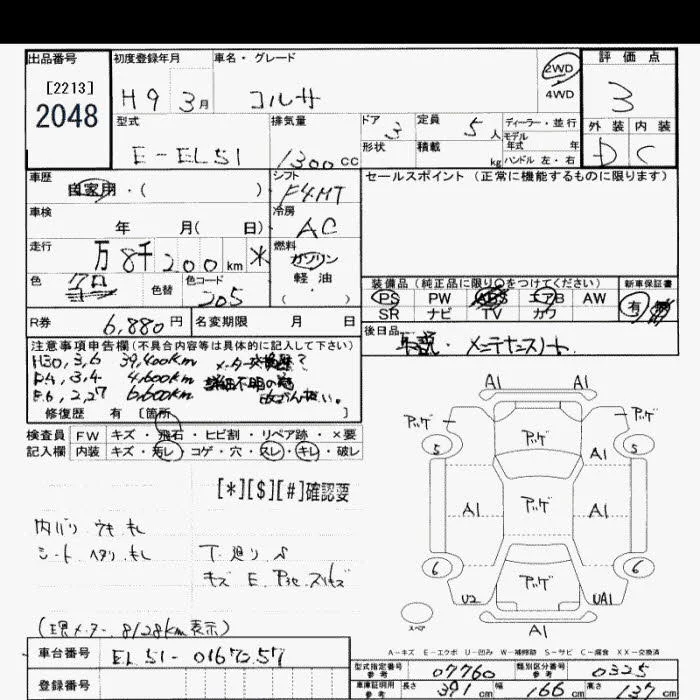 出品番号 初度登録年月 車名・グレード 2WD 評価点
[2213] 4WD
2048 H9 3月 コルサ 3
型式 排気量 ドア 定員 ディーラー・並行 外装 内装
3 5人 モデル年式 年
E-EL51 1300cc 形状 積載 kg ハンドル 左・右 D C
車歴 シフト セールスポイント(正常に機能するものに限ります)
自家用・( ) F4MT
車検 冷房
年 月( 日) AC
走行 燃料
万 8千 200km * ガソリン
色 クロ 色替 色コード 軽油 装備品(純正品に限り○をつけてください) 新車保証書
205 ( ) PS PW ABS エアB AW 有
SR ナビ TV カワ
R券 6,880円 名変期限 月 日 後日品
取説・メンテナンスノート
注意事項申告欄(不具合内容等は具体的に記入して下さい)
H30,3,6 39,400km メーター交換歴?
R4,3,4 4,600km 詳細不明の為
R6,2,27 6,600km 改ざん扱い。
修復歴 有 [箇所 ]
検査員 FW キズ・飛石・ヒビ割・リペア跡・×要
記入欄 内装 キズ・汚レ コゲ・穴・スレ・キレ・破レ
[*][$][#]確認要
内バリ ウキ キレ
シート ヘタリ キレ
下廻り S
キズ E
(現メーター 8128km表示)
A1 A1
アッゲ アッゲ アッゲ
5 A1 5
A1 アッゲ A1
6 アッゲ 6
U2 UA1
スペア A1
A-キズ E-エクボ U-凹み W-補修跡 S-サビ C-腐食 XX-交換済
車台番号 EL51-0167257
登録番号
型式指定番号 参考 07760 類別区分番号 参考 0325
車庫証明用 参考 長さ 391cm 幅 166cm 高さ 137cm